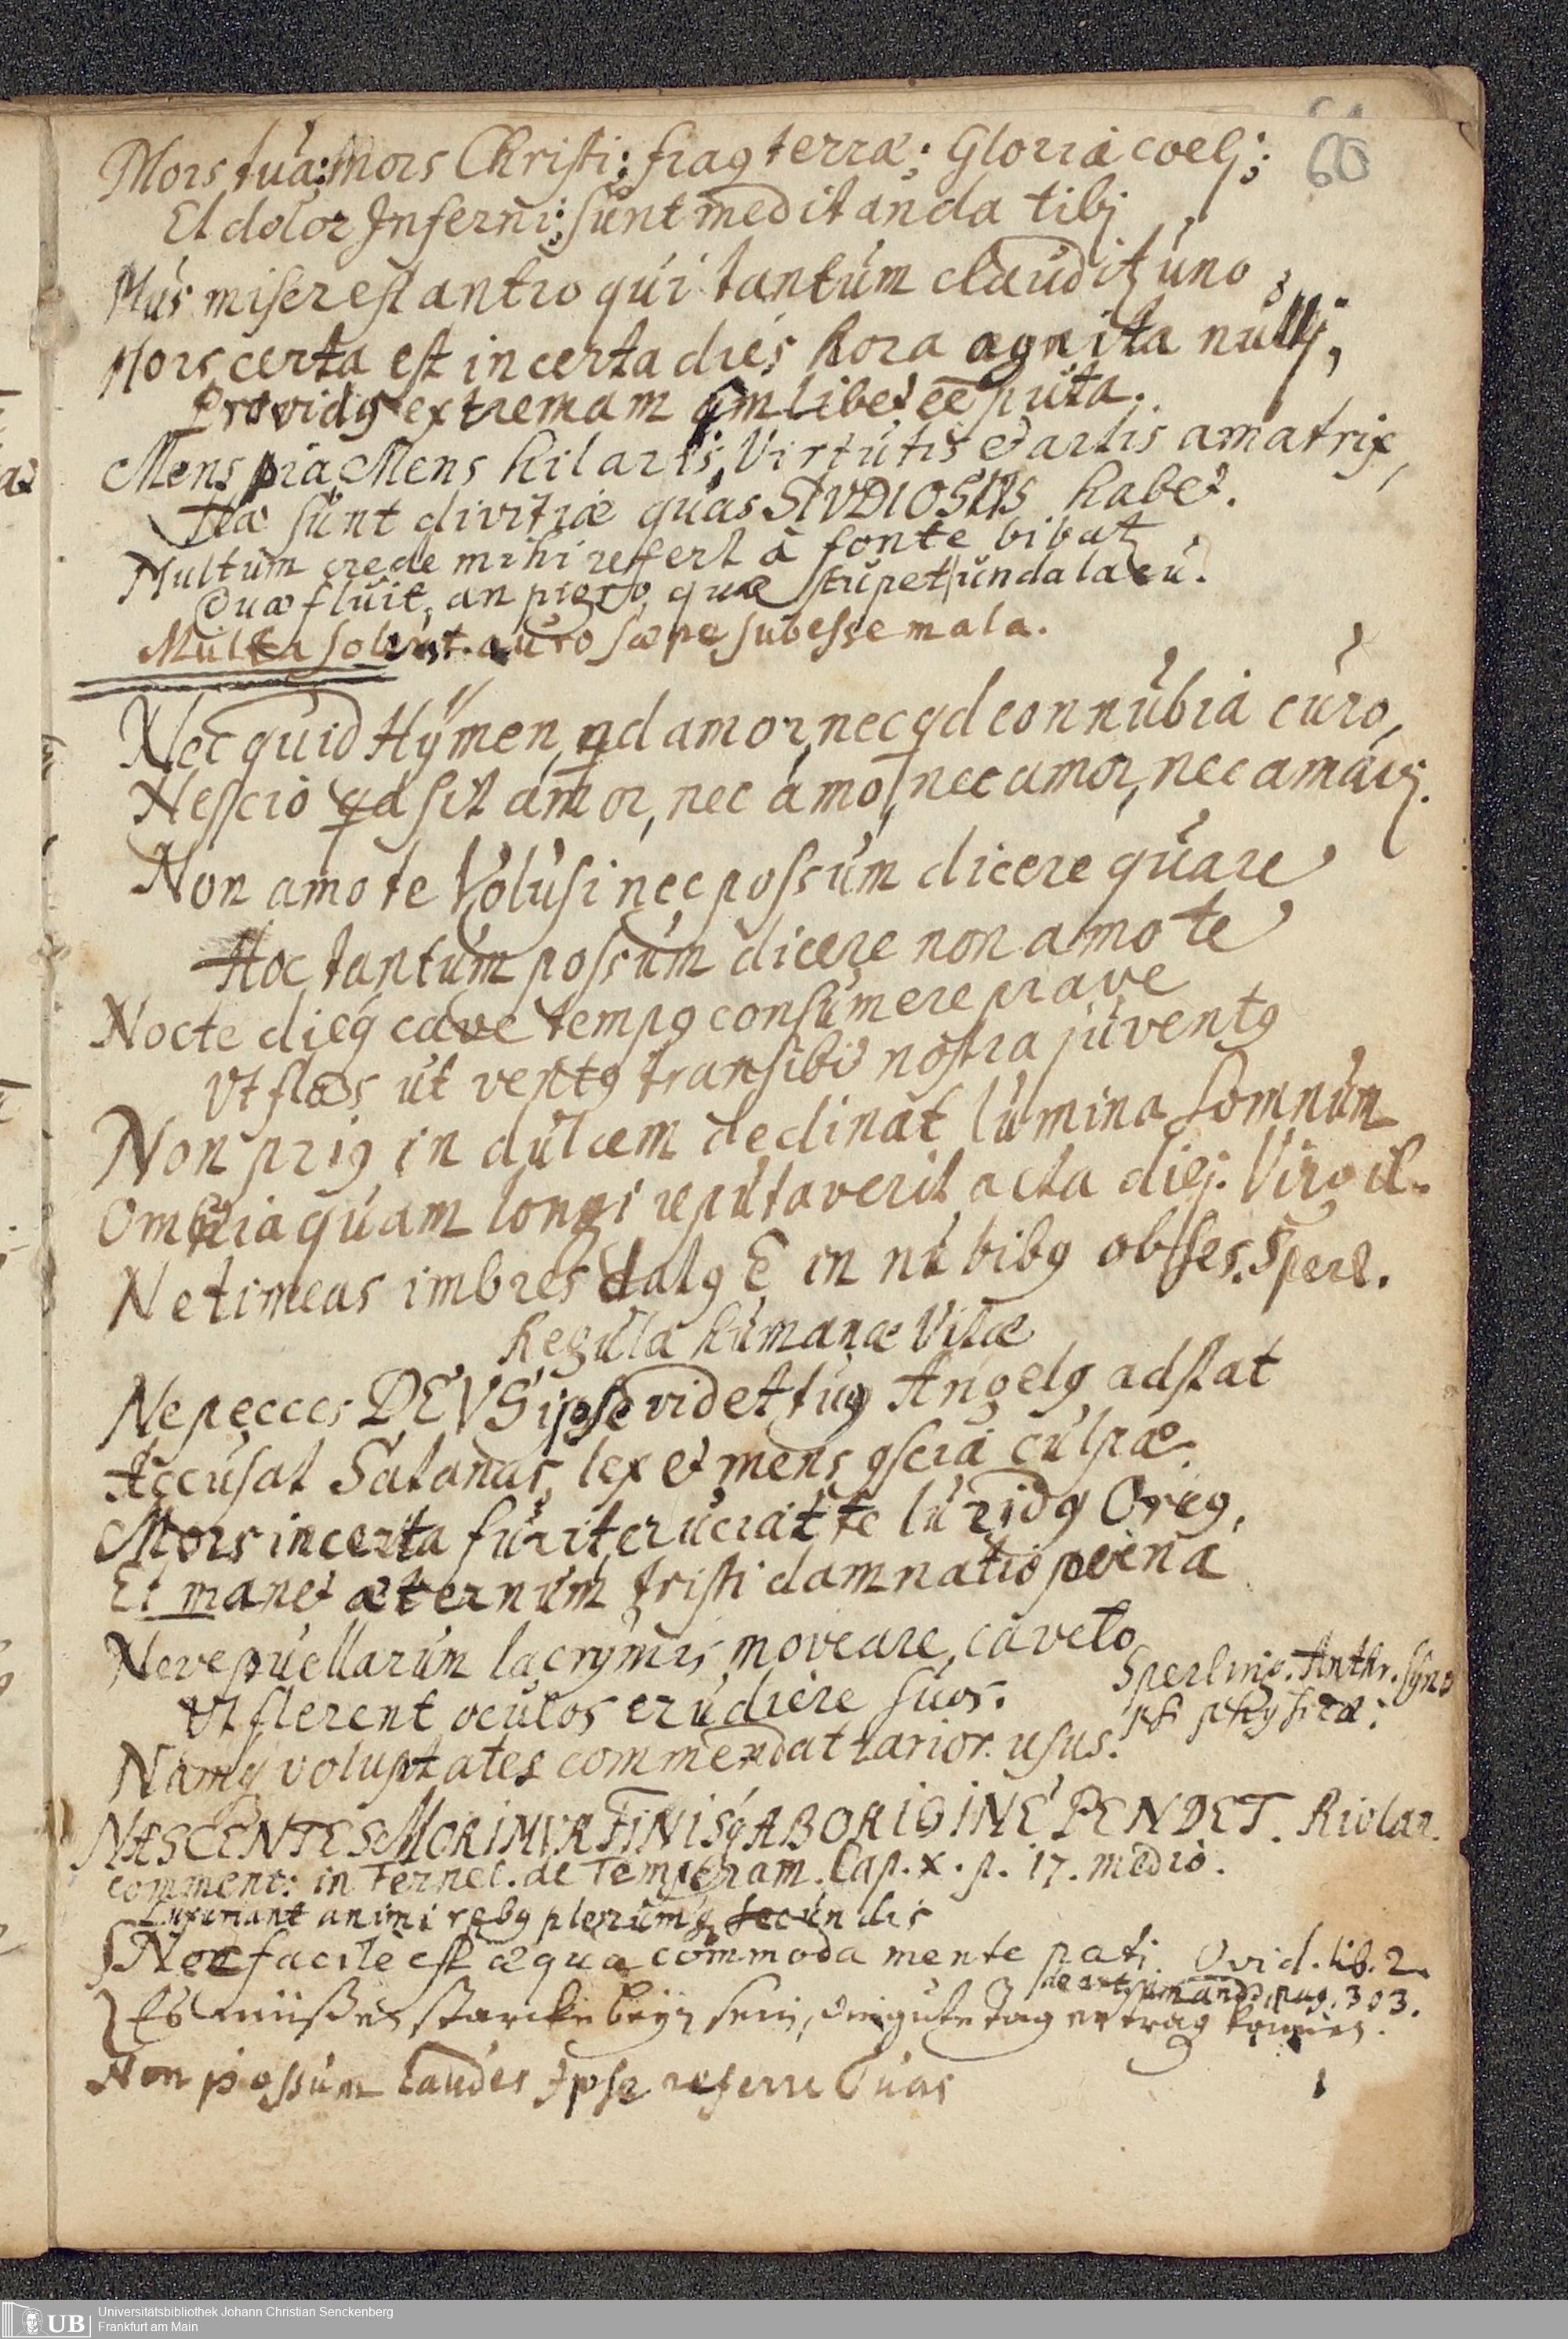 60
Mors tua: Mors Christi: fraꝰ terræ: Gloria coelj;
Et dolor Inferni: sunt meditanda tibj
Mus miser est antro qui tantum clauditꝛ uno;
Mors certa est incerta dies hora agnita nullj,
Providꝰ extremam qm libet ee puta.
Mens pia Mens hilaris, Virtutis et artis amatrix,
Hæ sunt divitiæ quas STVDIOSUS habet.
Multum crede mihi refert à fonte bibat
Quæ fluit, an pigro, quæ stupet unda lacu.
Multa solent auro sæpe subesse mala.
Nec quid Hÿmen, qd amor, nec qd connubia curo,
Nescio qd sit amor, nec amo, nec amor, nec amavj.
Non amo te Volusi nec possum dicere quare
Hoc tantum possum dicere non amo te
Nocte dieq́ cave tempꝰ consumere prave
Vt flos ut ventꝰ transibit nostra juventꝰ
Non priꝰ in dulcem declinat lumina somnum
Omnia quam longi reputaverit acta diej. Virgil.
Ne timeas imbres salꝰ E in nubibꝰ obsses. Sperl.
Regula humanæ Vitæ
Ne pecces DEVS ipse videt tuꝰ Angelꝰ adstat
Accusat Satanas, lex et mens ꝯscia culpæ.
Mors incerta furit, cruciat te luridꝰ Orcꝰ,
Et manet æternum tristi damnatio poena
Neve puellarum lacrymis moveare caveto
Ut flerent oculos erudiere suos.
Sperling. Anthr. syno
psi physicæ:
Namq́ voluptates commendat rarior usus.
NASCENTES MORIMVR FINISq́ AB ORIGINE PENDET. Riolan.
comment: in Fernel. de Temperam. Cap. X. p. 17. medio.
Luxuriant animi rebꝰ plerumq́ secundis
Nec facile est æqua commoda mente pati. Ovid. lib. 2.
de art. amandi, pag. 303.
Es müßen starcke beÿn sein, die gute tag ertrag können.
Non possum laudes Ipse referre Tuas
Universitätsbibliothek Johann Christian Senckenberg
Frankfurt am Main
UB